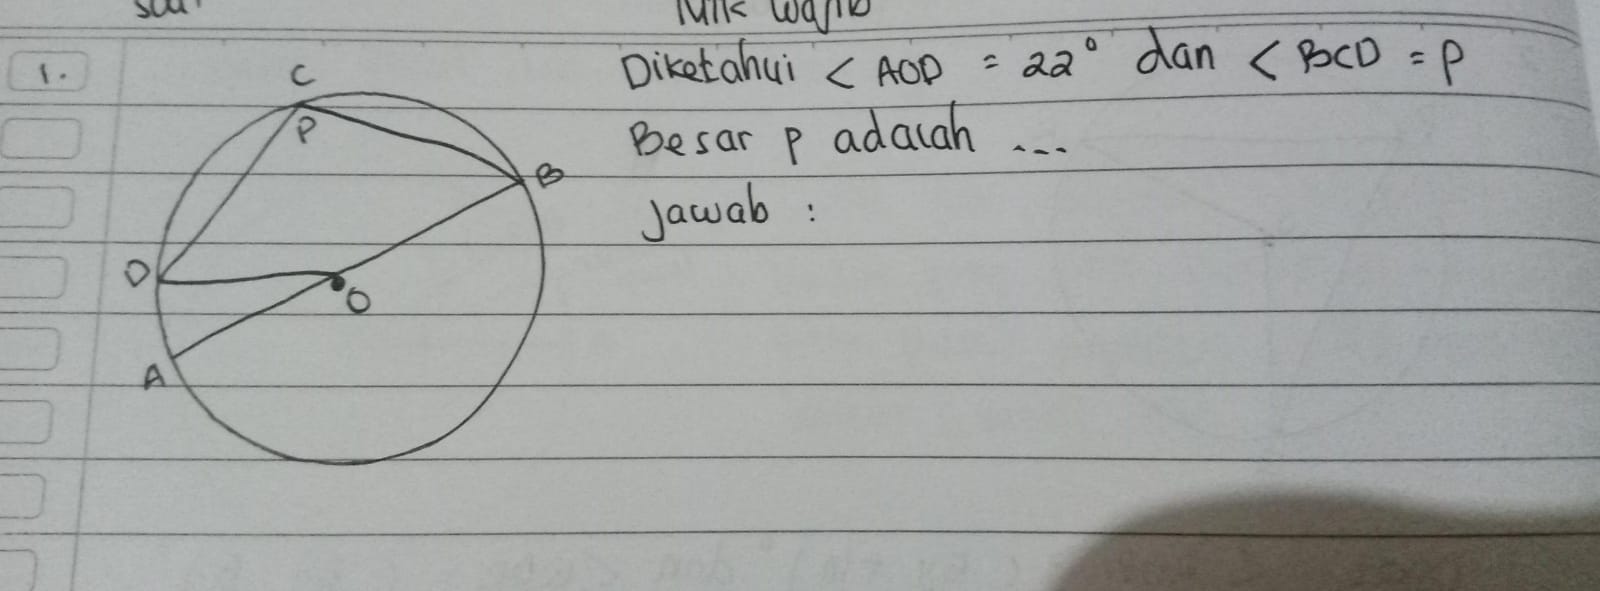 1.
Diketahui < AOD = 22° dan < BCD = p
Besar p adalah ...
Jawab :
C
P
B
D
O
A